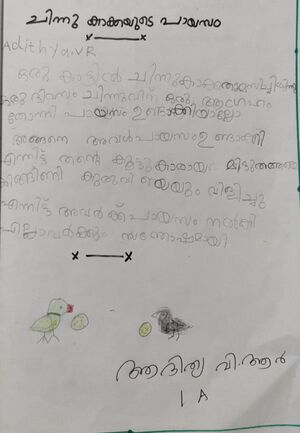 ചിന്നു കാക്കയുടെ പായസം
Adithya.VR
ഒരു കാട്ടിൽ ചിന്നുകാക്ക താമസിച്ചിരുന്നു
ഒരു ദിവസം ചിന്നുവിന് ഒരു ആഗ്രഹം
തോന്നി പായസം ഉണ്ടാക്കിയാലോ
അങ്ങനെ അവൾ പായസം ഉണ്ടാക്കി
എന്നിട്ട് തന്റെ കൂട്ടുകാരായ മിട്ടു
കുരുവിയെയും വിളിച്ചു
എന്നിട്ട് അവർക്ക് പായസം നൽകി
എല്ലാവർക്കും സന്തോഷമായി
ആദിത്യ വി.ആർ
1 A